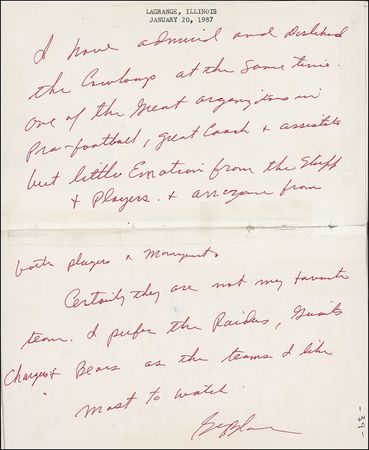 LAGRANGE, ILLINOIS
JANUARY 20, 1987
I have admired and disliked
the Cowboys at the same time.
One of the great organizations in
Pro-football, great Coach & assistants
but little Emotion from the Staff
& Players. & arrogance from
both players & Management.
Certainly they are not my favorite
team. I prefer the Raiders, Giants
Chargers & Bears as the teams I like
most to watch.
-39-